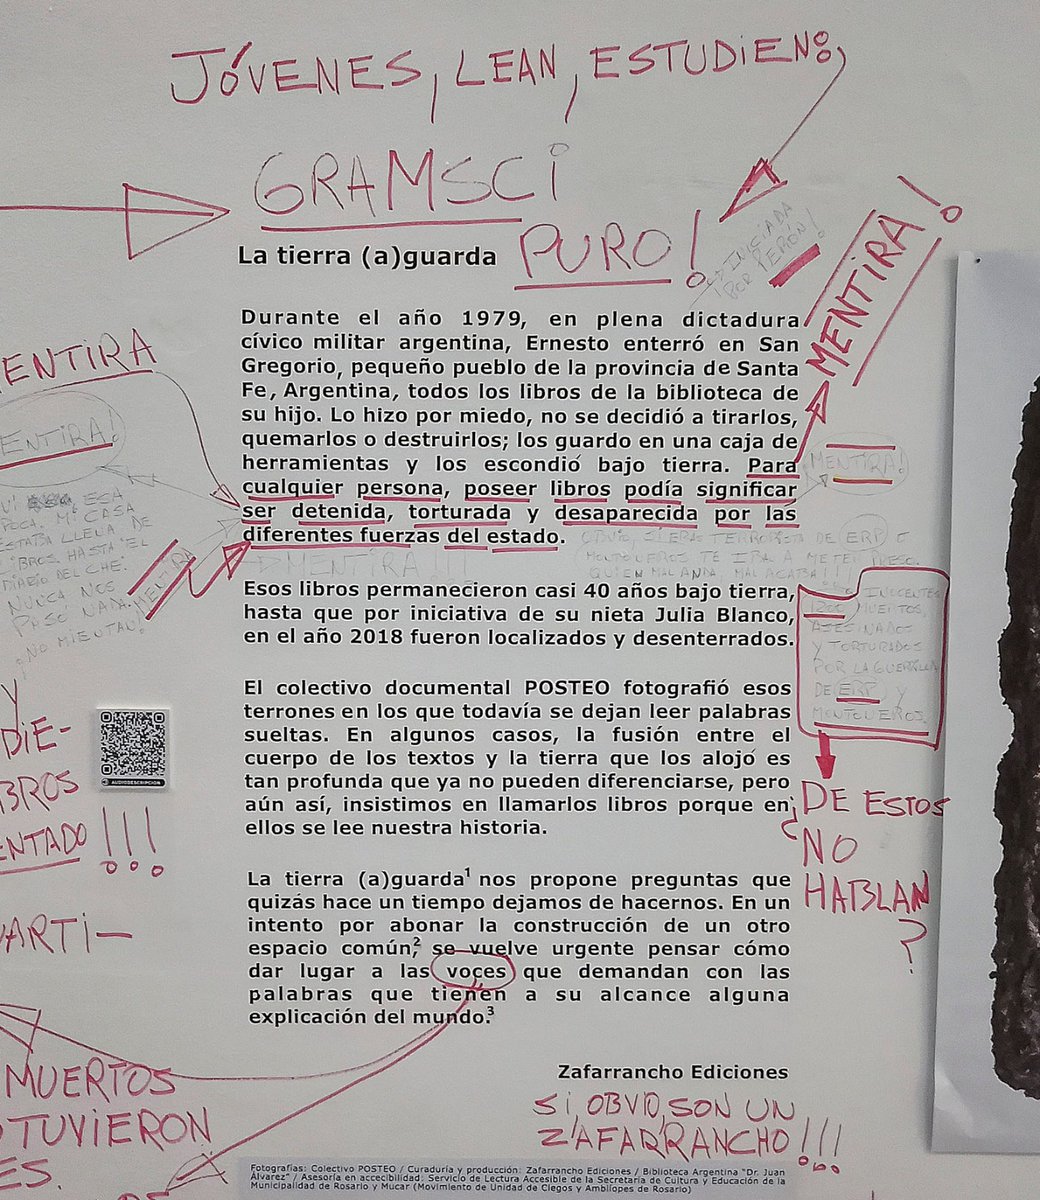 JÓVENES, LEAN, ESTUDIEN:
GRAMSCI
PURO!
La tierra (a)guarda
INICIADA
POR PERÓN!
MENTIRA!
Durante el año 1979, en plena dictadura
cívico militar argentina, Ernesto enterró en San
Gregorio, pequeño pueblo de la provincia de Santa
Fe, Argentina, todos los libros de la biblioteca de
su hijo. Lo hizo por miedo, no se decidió a tirarlos,
quemarlos o destruirlos; los guardo en una caja de
herramientas y los escondió bajo tierra. Para
cualquier persona, poseer libros podía significar
ser detenida, torturada y desaparecida por las
diferentes fuerzas del estado.
ENTIRA
ENTIRA!
ESA
POCA. MI CASA
ESTABA LLENA DE
IBROS. HASTA EL
DIARIO DEL CHE.
NUNCA NOS
PASÓ NADA.
¡NO MIENTAN!
MENTIRA
¡MENTIRA!
MENTIRA!!!
OBVIO, SI ERAS TERRORISTA DE ERP O
MONTONEROS TE IBA A METER PRESO.
QUIEN MAL ANDA, MAL ACABA!!!
Esos libros permanecieron casi 40 años bajo tierra,
hasta que por iniciativa de su nieta Julia Blanco,
en el año 2018 fueron localizados y desenterrados.
INOCENTES
1200 MUERTOS,
ASESINADOS
Y TORTURADOS
POR LA GUERRILLA
DE ERP Y
MONTONEROS.
¿DE ESTOS
NO
HABLAN
?
El colectivo documental POSTEO fotografió esos
terrones en los que todavía se dejan leer palabras
sueltas. En algunos casos, la fusión entre el
cuerpo de los textos y la tierra que los alojó es
tan profunda que ya no pueden diferenciarse, pero
aún así, insistimos en llamarlos libros porque en
ellos se lee nuestra historia.
Y
DIE-
BROS
ENTADO!!!
ARTI-
AUDIODESCRIPCIÓN
La tierra (a)guarda¹ nos propone preguntas que
quizás hace un tiempo dejamos de hacernos. En un
intento por abonar la construcción de un otro
espacio común,² se vuelve urgente pensar cómo
dar lugar a las voces que demandan con las
palabras que tienen a su alcance alguna
explicación del mundo.³
MUERTOS
TUVIERON
ES.
Zafarrancho Ediciones
SI, OBVIO, SON UN
ZAFARRANCHO!!!
Fotografías: Colectivo POSTEO / Curaduría y producción: Zafarrancho Ediciones / Biblioteca Argentina "Dr. Juan
Álvarez" / Asesoría en accecibilidad: Servicio de Lectura Accesible de la Secretaría de Cultura y Educación de la
Municipalidad de Rosario y Mucar (Movimiento de Unidad de Ciegos y Amblíopes de Rosario)